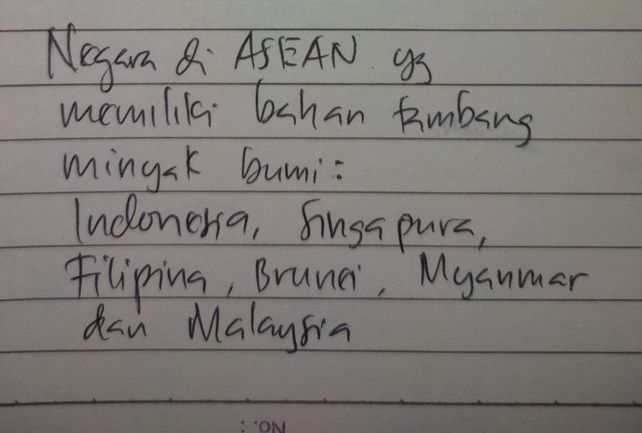 Negara di ASEAN yg
memiliki bahan tambang
minyak bumi :
Indonesia, Singapura,
Filipina, Brunei, Myanmar
dan Malaysia
No. :